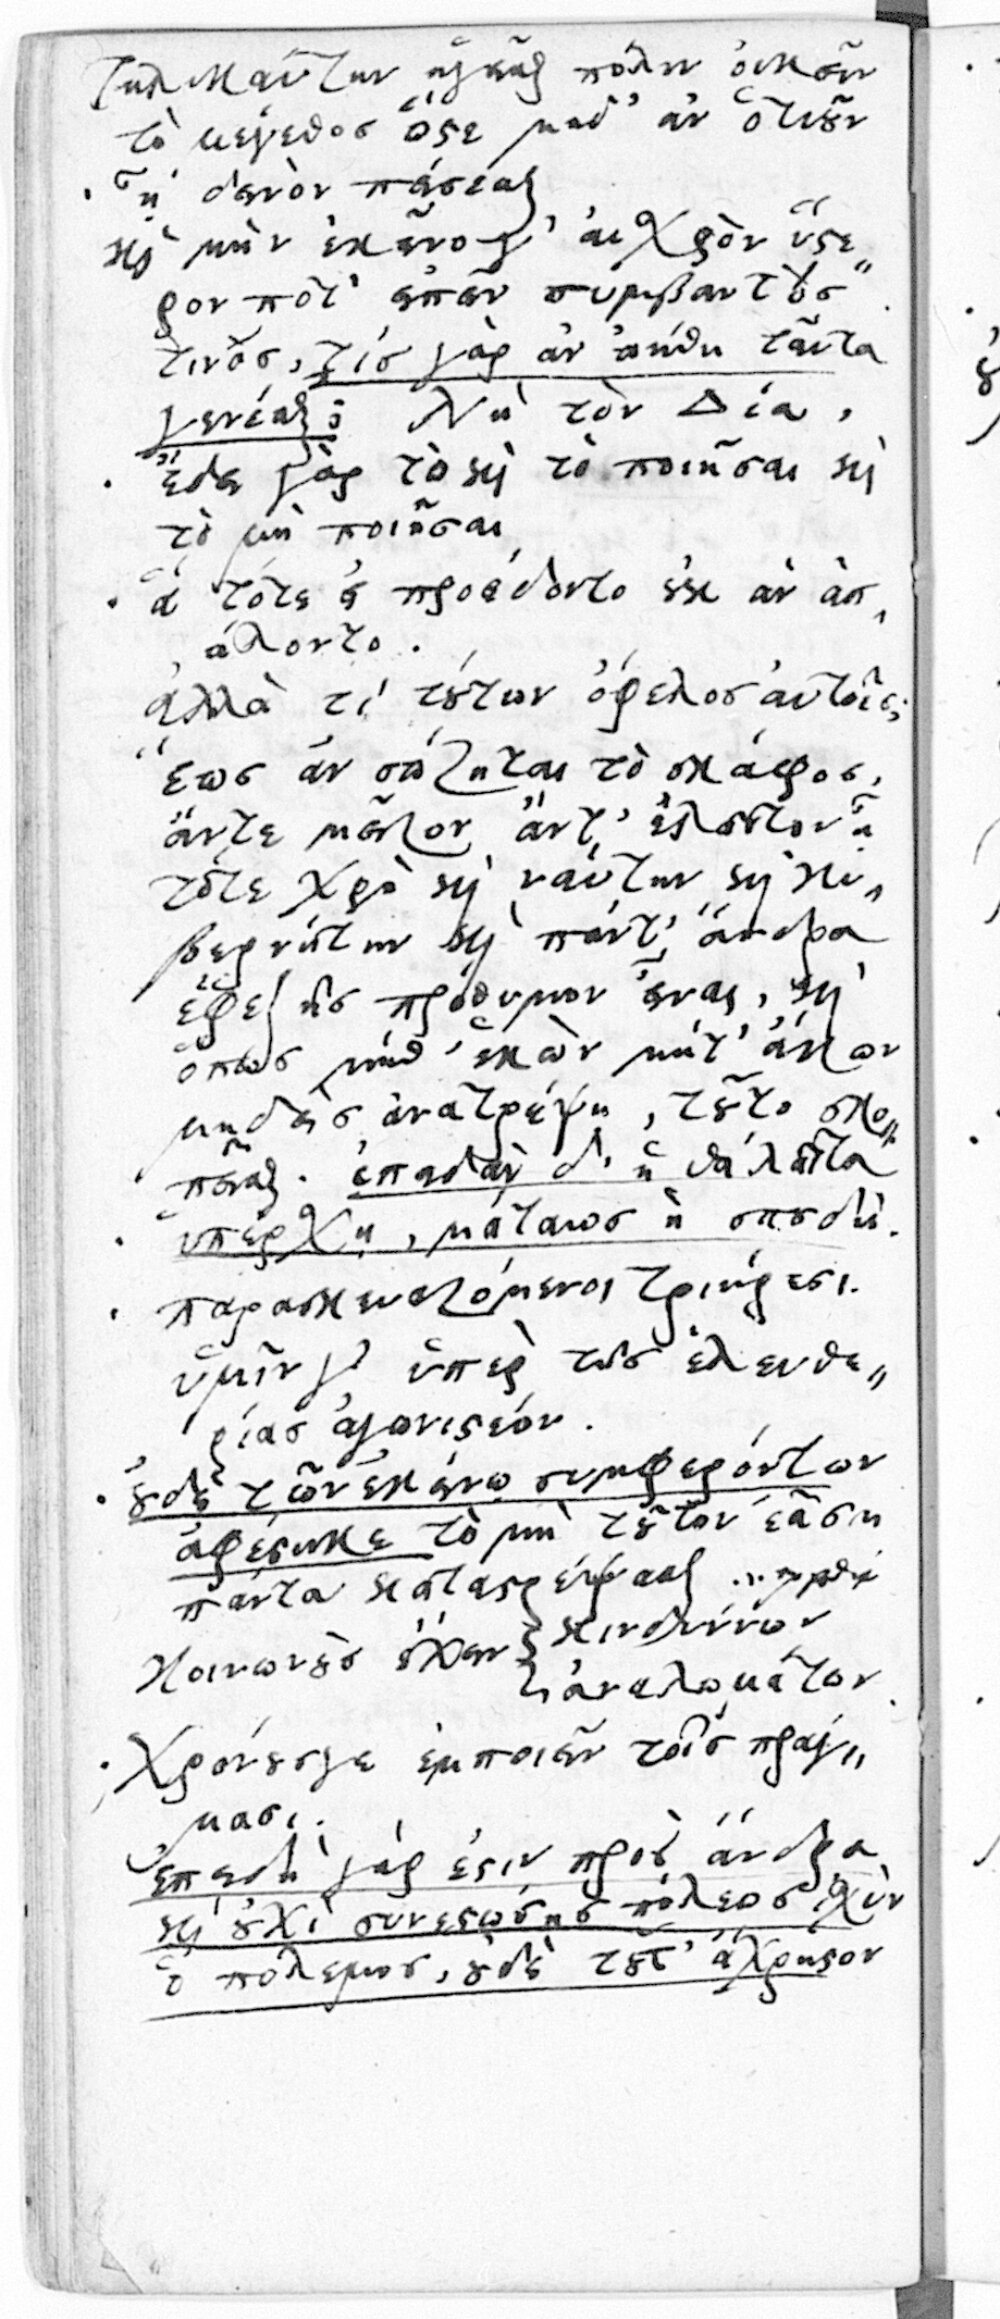 τηλικαύτην ἡγεῖσθαι πόλιν οἰκεῖν
τὸ μέγεθος ὥστε μηδ' ἂν ὁτιοῦν
ᾖ δεινὸν πείσεσθαι
καὶ μὴν ἐκεῖνό γ' αἰσχρὸν ὕστε"
ρον πότ' εἰπεῖν συμβάντος
τινὸς, τίς γὰρ ἂν ᾠήθη ταῦτα
γενέσθαι; Νὴ τὸν Δία,
ἔδει γὰρ τὸ καὶ τὸ ποιῆσαι καὶ
τὸ μὴ ποιῆσαι
ἃ τότε εἰ προείδοντο οὐκ ἂν ἀπ,
ώλοντο.
ἀλλὰ τί τούτων ὄφελος αὐτοῖς;
ἕως ἂν σώζηται τὸ σκάφος,
ἄντε μεῖζον ἄντ' ἔλαττον ᾖ
τότε χρὴ καὶ ναύτην καὶ κυ"
βερνήτην καὶ πάντ' ἄνδρα
ἐφεξῆς πρόθυμον εἶναι, καὶ
ὅπως μήθ' ἑκὼν μήτ' ἄκων
μηδεὶς ἀνατρέψῃ, τοῦτο σκο"
πεῖσθαι. ἐπειδὰν δ' ἡ θάλαττα
ὑπέρσχῃ, μάταιος ἡ σπουδή.
παρασκευαζόμενοι τριήρεσι.
ὑμῖν γ' ὑπὲρ τῆς ἐλευθε"
ρίας ἀγωνιστέον.
οὐδὲ τῶν ἐκείνῳ συμφερόντων
ἀφέστηκε τὸ μὴ τοῦτον ἐᾶσαι
πάντα καταστρέψασθαι
κοινωνοὺς ἔχειν { κινδύνων
ἀναλωμάτων
χρόνους γε ἐμποιεῖν τοῖς πράγ"
μασι.
ἐπειδὴ γάρ ἐστιν πρὸς ἄνδρα
καὶ οὐχὶ συνεστώσης πόλεως ἰσχὺν
ὁ πόλεμος, οὐδὲ τοῦτ' ἄχρηστον